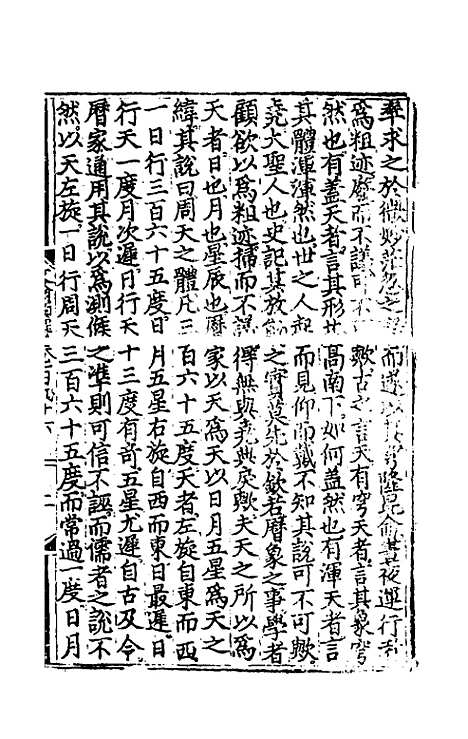 率求之於微妙之而遂穹隆晝夜運行
爲粗迹廢而不講可不歟古之言天有穹天者言其象穹
然也有蓋天者言其形高南下如何蓋然也有渾天者言
其體渾渾然也世之人起而見仰而戴不知其說可不可歟
堯大聖人也史記其放勛之實莫先於欽若曆象之事學者
顧欲以爲粗迹而不講得無與堯典戾歟夫天之所以爲
天者日也月也星辰也曆家以天爲天以日月五星爲天之
緯其說曰周天之體凡三百六十五度天者左旋自東而西
一日行三百六十五度日月五星右旋自西而東日最遲日
行天一度月次遲日行天十三度有奇五星尤遲自古及今
曆家通用其說以爲測候之準則可信不誣而儒者之說不
然以天左旋一日行周天三百六十五度而常過一度日月